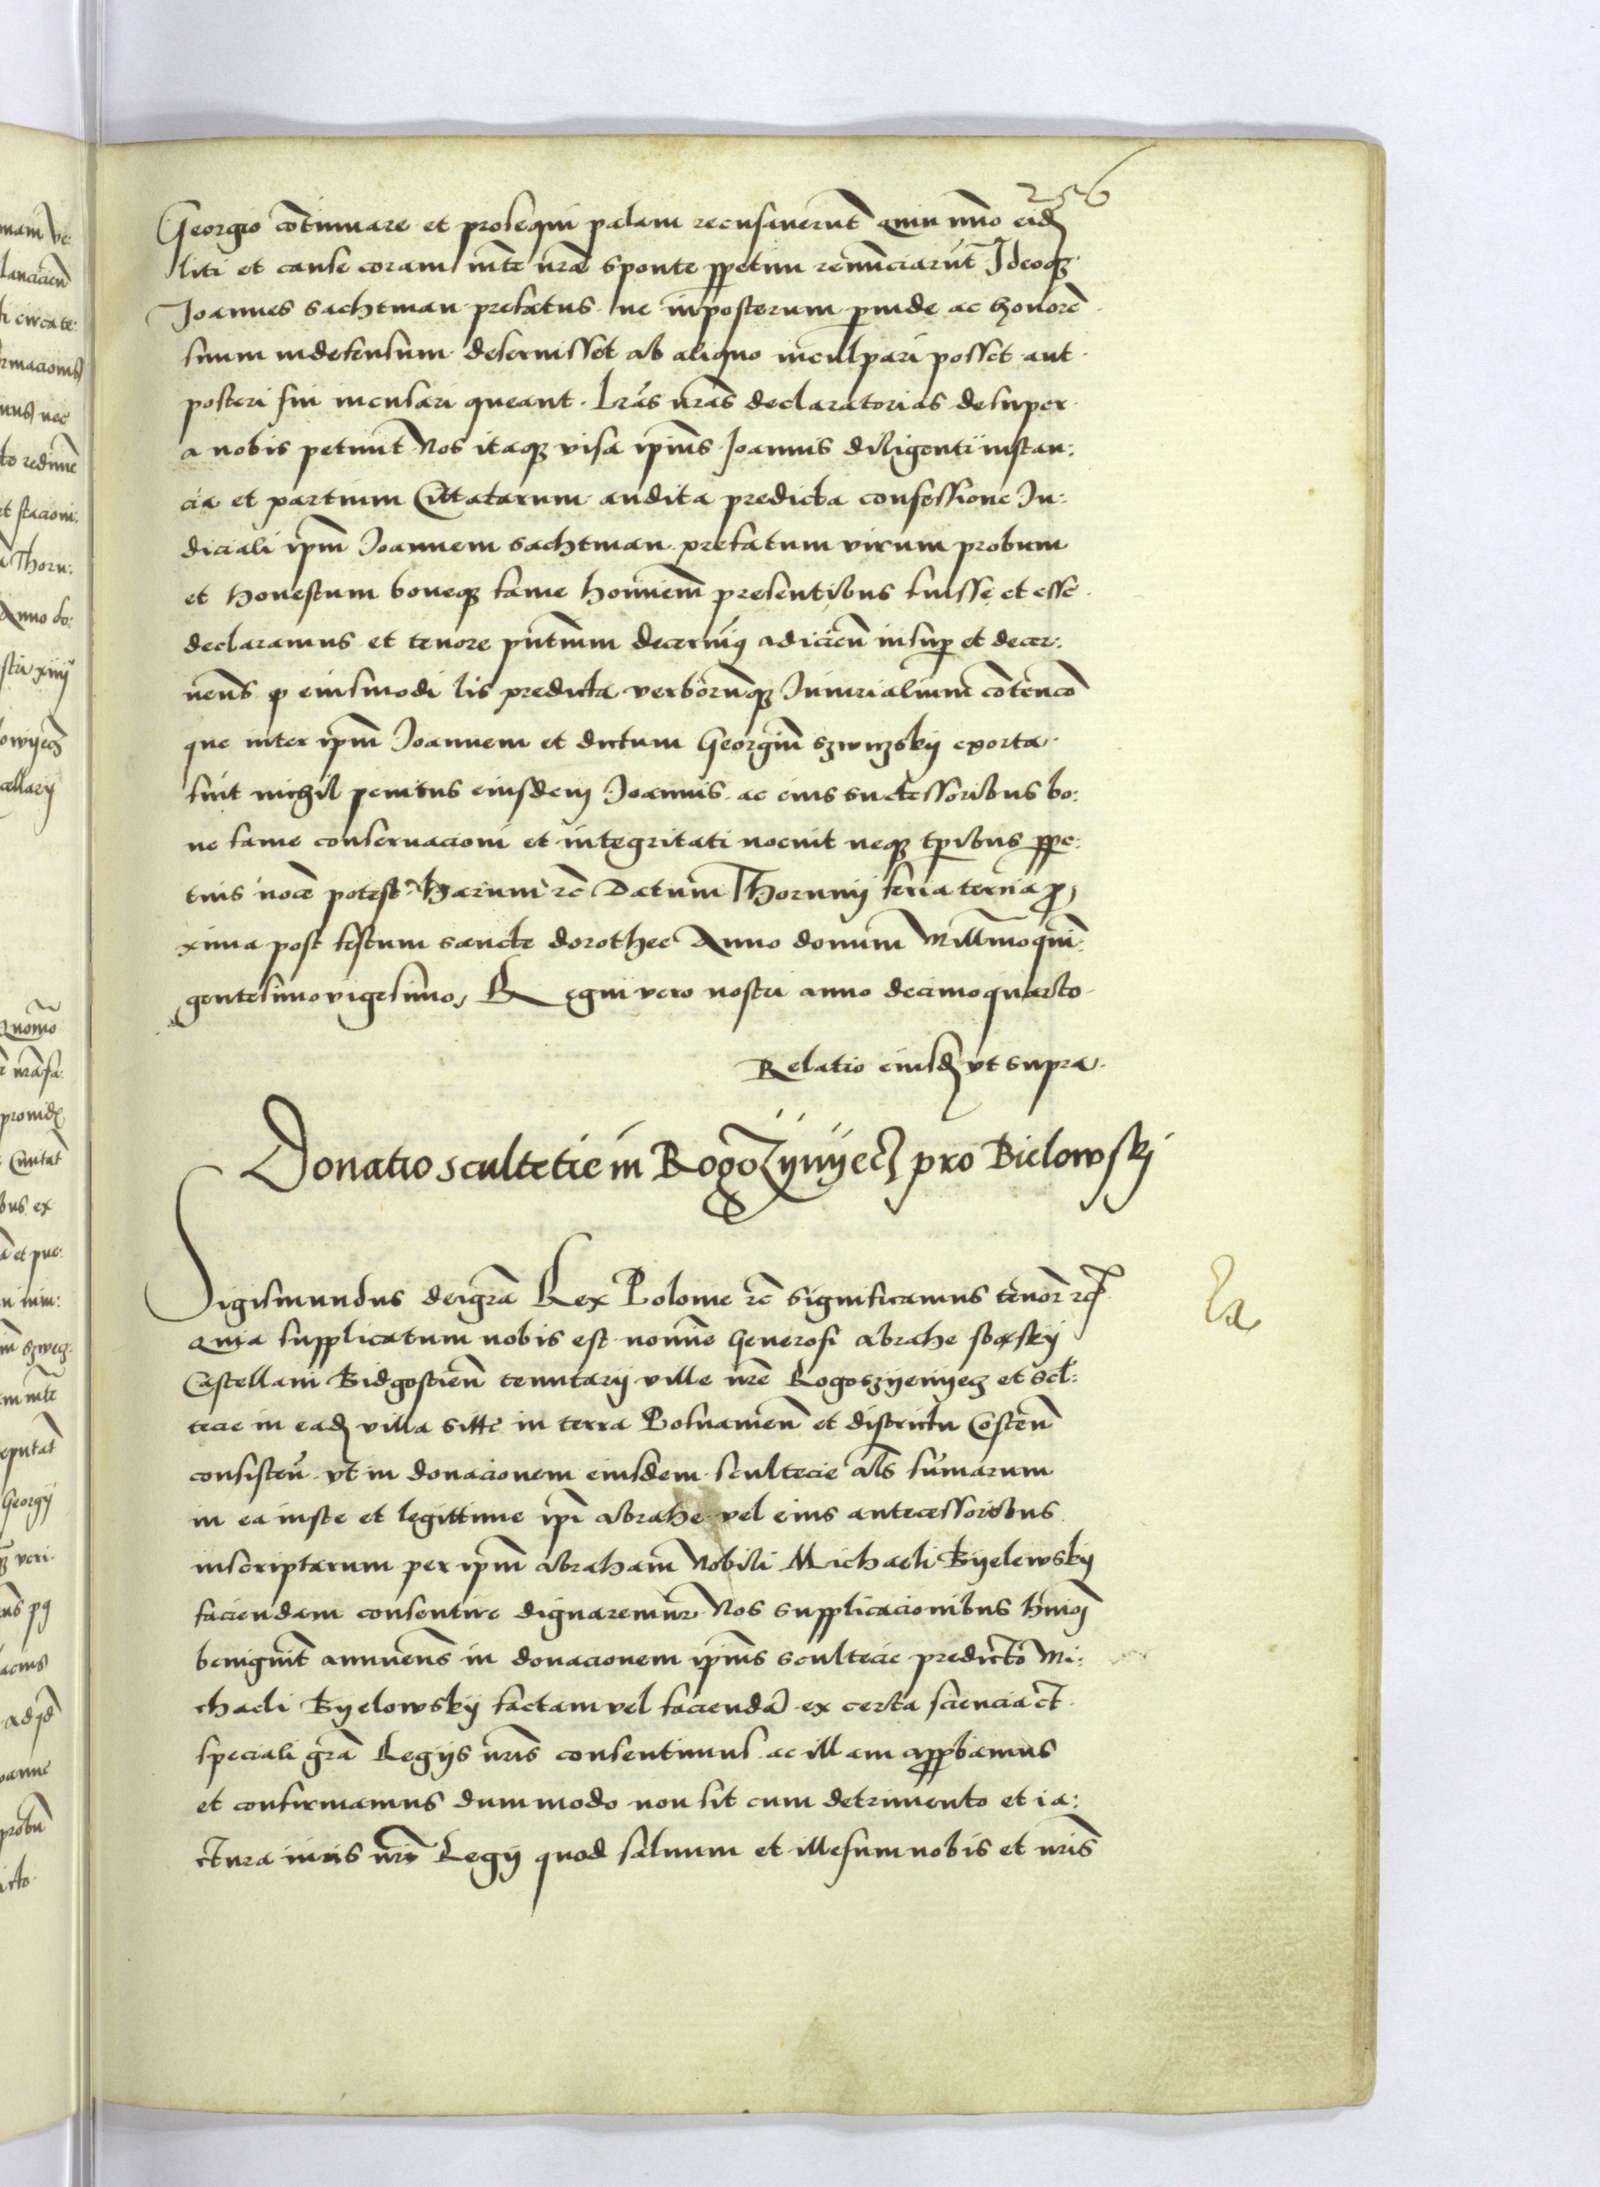 236
Georgio cōtinuare et prosequi palam recusaverūt quin ūno eidē
liti et cause coram mte nrā sponte ppetuu renūnciarūt Ideoqz
Joannes sachtman prefatus ne inposterum pinde ac honorē
suum indefensum deseruisset ab aliquo inculpari posset aut
posteri sui incusari queant Lrās nrās declaratorias desuper
a nobis petiuit Nos itaqz visa ipius Joannis diligenti instan:
cia et partium Cittatarum audita predicta confessione Ju:
diciali ipm Joannem sachtman prefatum virum probum
et honestum boneqz fame hominem presentibus fuisse et esse
declaramus et tenore pntium decernimq adiicien insup et decer:
nens qp eiusmodi lis predicta verborumqz Iniurialium contencō
que inter ipm Joannem et dictum Georgiū szwiczskij exorta
fuit nichil penitus eiusdem Joannis ac eius successoribus bo:
ne fame conservacioni et integritati nocuit neqz tpibus ppe:
tuis nocē potest Harum rc Datum Thorunij feria tercia p
xima post festum sancte dorothee Anno domini Millmoquin
gentesimovigesimo, Regni vero nostri anno decimoquarto
Relatio eiusdē vt supra
Donatio scultetie in Rogozijnijecz pro Bielowskj
Sigismundus dei grā Rex Polonie rc significamus tenorē rc
Quia supplicatum nobis est nomine Generosi Abrahe sbaskij
Castellani Bidgostien tenutarij ville nrē Rogoszijenijecz et scl:
tecie in eadē villa sittē in terra Posnanien et districtu Costen
consisten vt in donacionem eiusdem scultecie als sumarum
in ea iuste et legittime ipi Abrahe vel eius antecessoribus
inscriptarum per ipm Abraham Nobili Michaeli Bijelewskij
faciendam consentire dignaremur Nos supplicacionibus hmōi
benignit annuens in donacionem ipius scultecie predicto Mi:
chaeli Bijelowskij factam vel faciendā ex certa sciencia et
speciali grā Regijs nris consentimus ac illam approbamus
et confirmamus dummodo non sit cum detrimento et ia:
ctura iuris nri Regij quod salvum et illesum nobis et nris